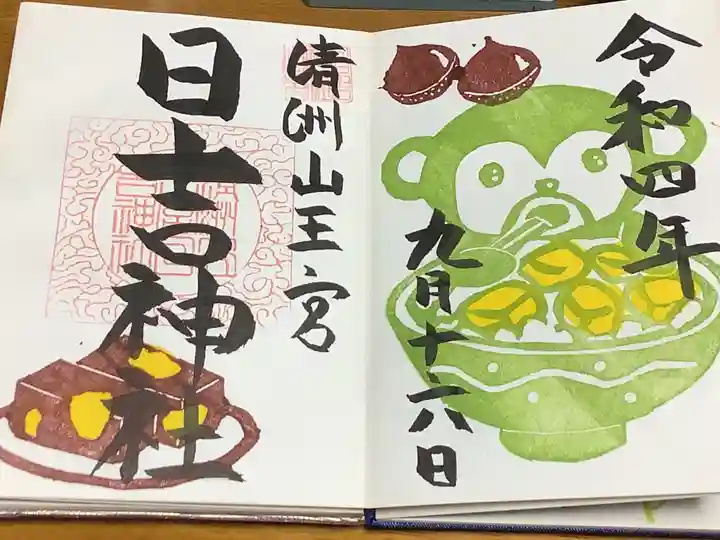 令和四年
九月十六日
清洲山王宮
日吉神社